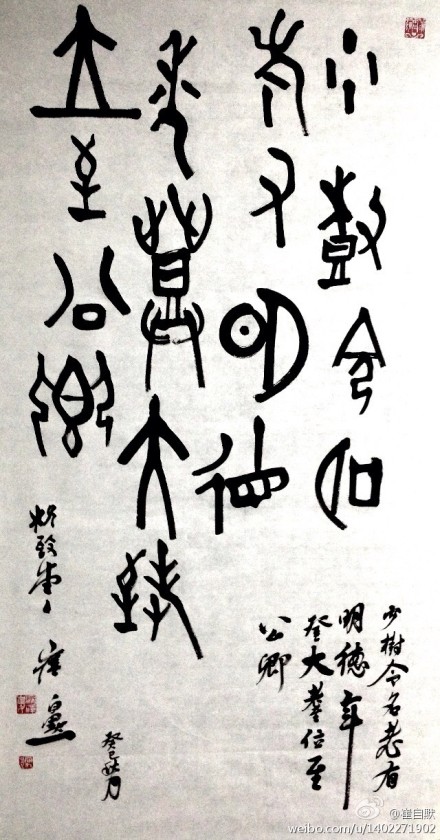 少樹令名
老有明德
年登大耋
位至公卿
少樹令名老有
明德年
登大耋位至
公卿
癸巳
@崔自默
weibo.com/u/1402271902